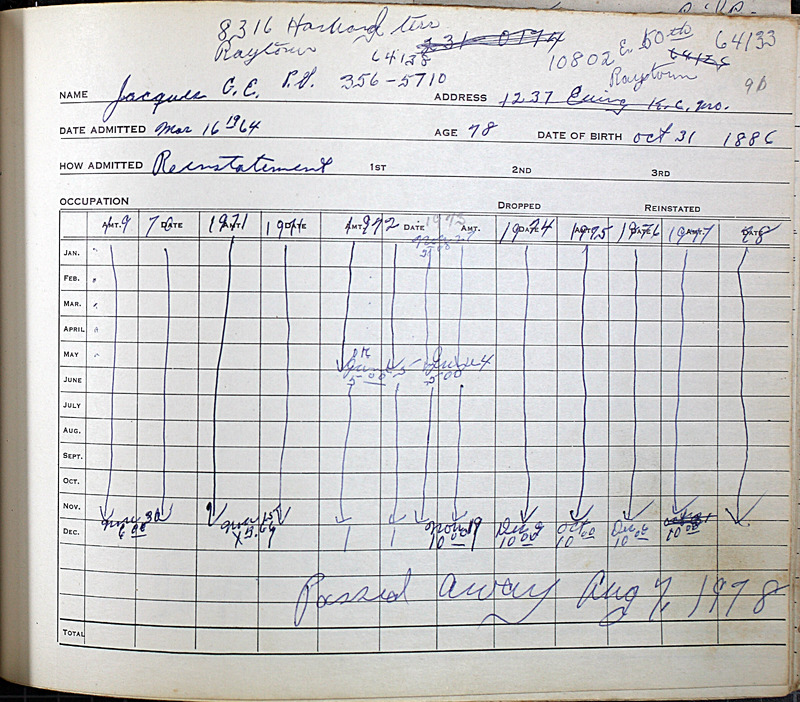 8316
Raytown 64138 231-0174
10802 E. 50th 64133
64126
Raytown
9D
NAME Jacques G. E. P.V. 356-5710 ADDRESS 1237 Ewing K.C. Mo.
DATE ADMITTED Mar 16 1964 AGE 78 DATE OF BIRTH Oct 31 1886
HOW ADMITTED Reinstatement 1ST 2ND 3RD
OCCUPATION DROPPED REINSTATED
AMT. 9 70 DATE 1971 AMT. DATE AMT. 972 DATE 1973 AMT. 1974 DATE 1975 AMT. 1976 DATE 1977 AMT. 78 DATE
JAN.
FEB.
MAR.
APRIL
MAY
JUNE 5.00 June 4 5.00
JULY
AUG.
SEPT.
OCT.
NOV.
Nov 30 6.00 Nov 15 Nov 19 10.00 Dec 9 10.00 Oct 10.00 Dec 6 10.00 10.00
DEC.
Passed away Aug 7, 1978
TOTAL